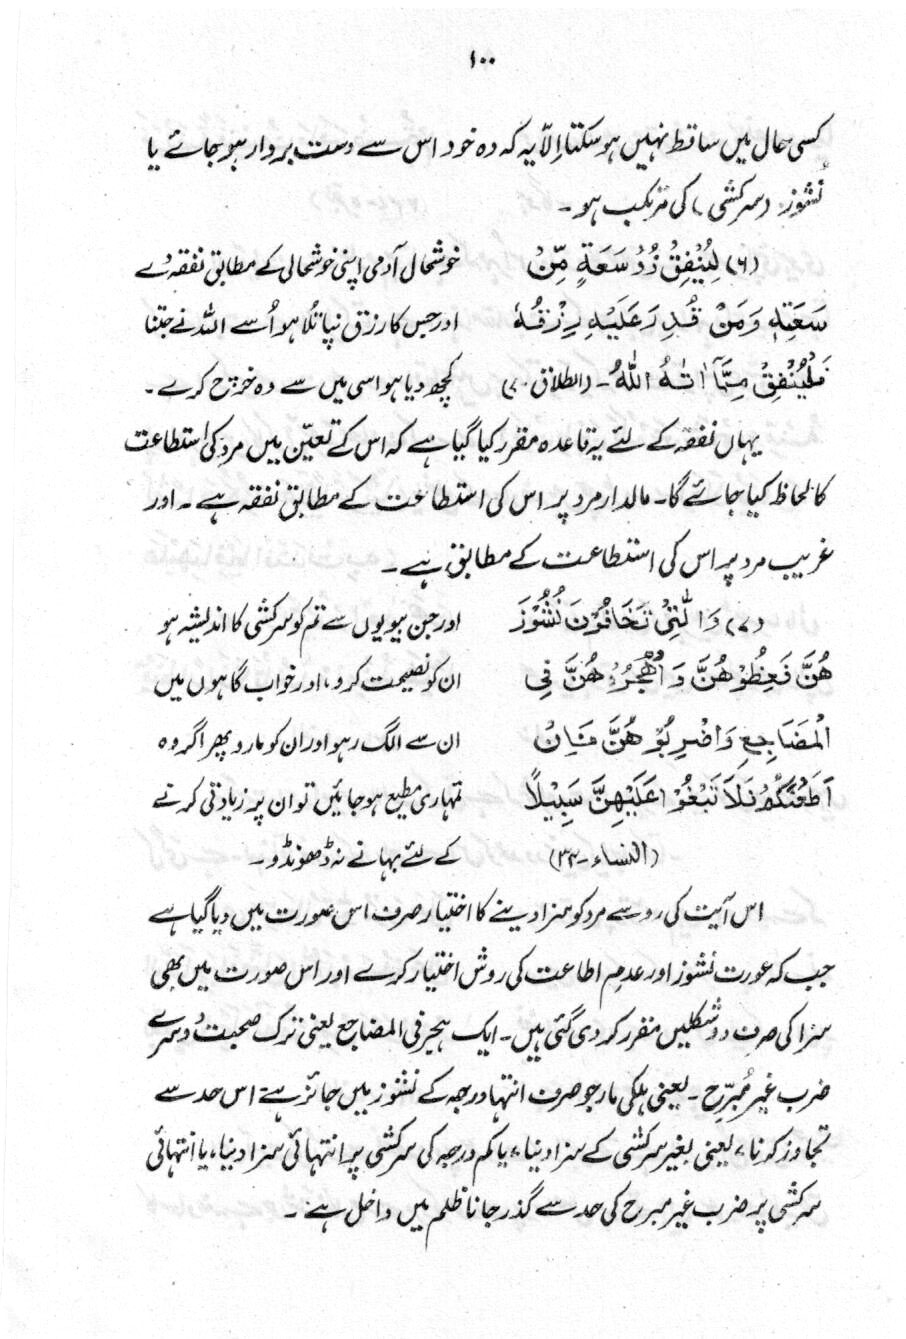 ۱۰۰
کسی حال میں ساقط نہیں ہوسکتا اِلّا یہ کہ وہ خود اس سے دست بردار ہو جائے یا
نُشوز (سرکشی) کی مرتکب ہو۔
(۶) لِيُنْفِقْ ذُوْ سَعَةٍ مِّنْ خوشحال آدمی اپنی خوشحالی کے مطابق نفقہ دے
سَعَتِهٖ وَمَنْ قُدِرَ عَلَيْهِ رِزْقُهٗ اور جس کا رزق نپا تُلا ہو اُسے اللہ نے جتنا
فَلْيُنْفِقْ مِمَّآ اٰتٰهُ اللّٰهُ۔ (الطلاق۔۷) کچھ دیا ہو اسی میں سے وہ خرچ کرے۔
یہاں نفقہ کے لئے یہ قاعدہ مقرر کیا گیا ہے کہ اس کے تعیّن میں مرد کی استطاعت
کا لحاظ کیا جائے گا۔ مالدار مرد پر اس کی استطاعت کے مطابق نفقہ ہے۔ اور
غریب مرد پر اس کی استطاعت کے مطابق ہے۔
(۷) وَالّٰتِيْ تَخَافُوْنَ نُشُوْزَ اور جن بیویوں سے تم کو سرکشی کا اندیشہ ہو
هُنَّ فَعِظُوْهُنَّ وَاهْجُرُوْهُنَّ فِي ان کو نصیحت کرو، اور خواب گاہوں میں
الْمَضَاجِعِ وَاضْرِبُوْهُنَّ فَاِنْ ان سے الگ رہو اور ان کو مارو پھر اگر وہ
اَطَعْنَكُمْ فَلَا تَبْغُوْا عَلَيْهِنَّ سَبِيْلًا تمہاری مطیع ہو جائیں تو ان پر زیادتی کرنے
(النساء۔۳۴) کے لئے بہانے نہ ڈھونڈو۔
اس آیت کی رو سے مرد کو سزا دینے کا اختیار صرف اس صورت میں دیا گیا ہے
جب کہ عورت نشوز اور عدمِ اطاعت کی روش اختیار کرے اور اس صورت میں بھی
سزا کی صرف دو شکلیں مقرر کر دی گئی ہیں۔ ایک ہجر فی المضاجع یعنی ترک صحبت دُوسرے
ضرب غیر مُبرِّح۔ یعنی ہلکی مار جو صرف انتہا درجہ کے نشوز میں جائز ہے، اس حد سے
تجاوز کرنا، یعنی بغیر سرکشی کے سزا دینا، یا کم درجہ کی سرکشی پر انتہائی سزا دینا، یا انتہائی
سرکشی پر ضرب غیر مبرح کی حد سے گذر جانا ظلم میں داخل ہے۔